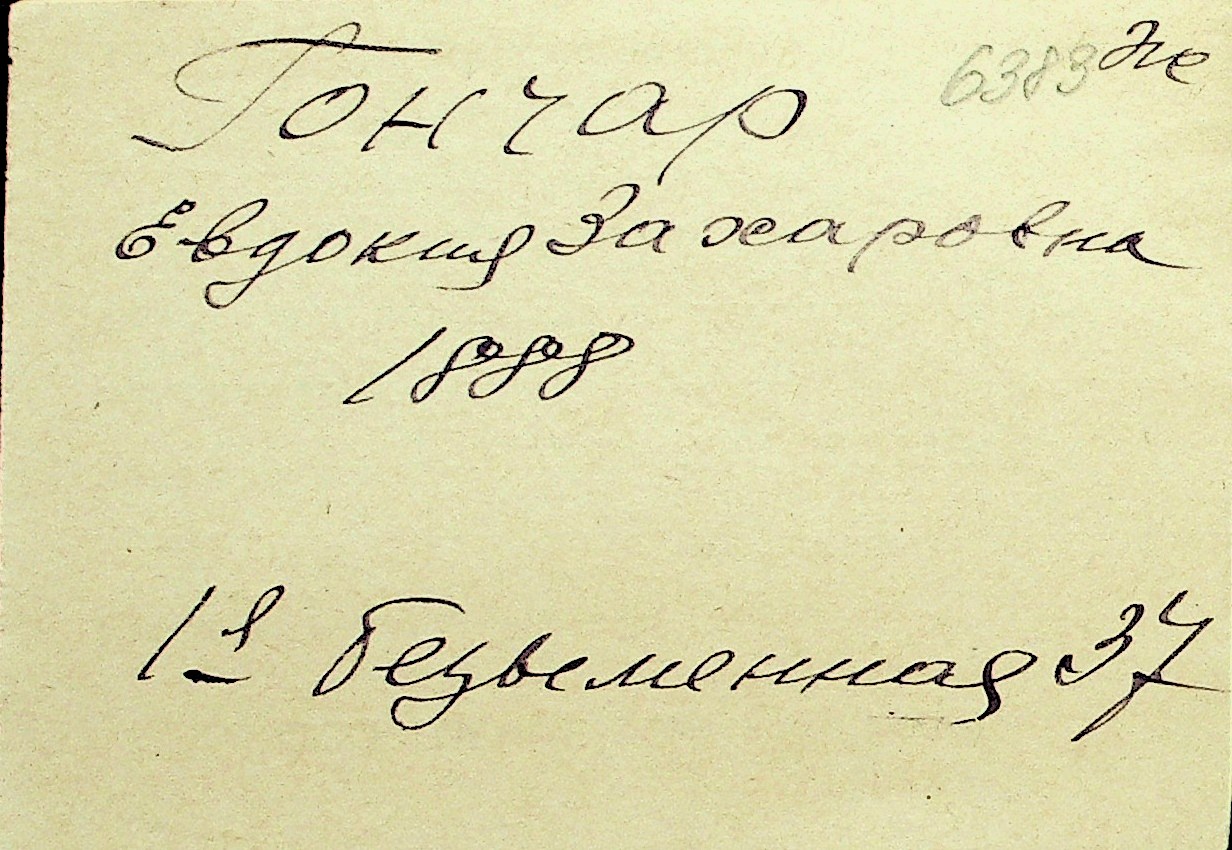 Гончар 6383 не
Евдокия Захаровна
1888
1я Безыменная 37